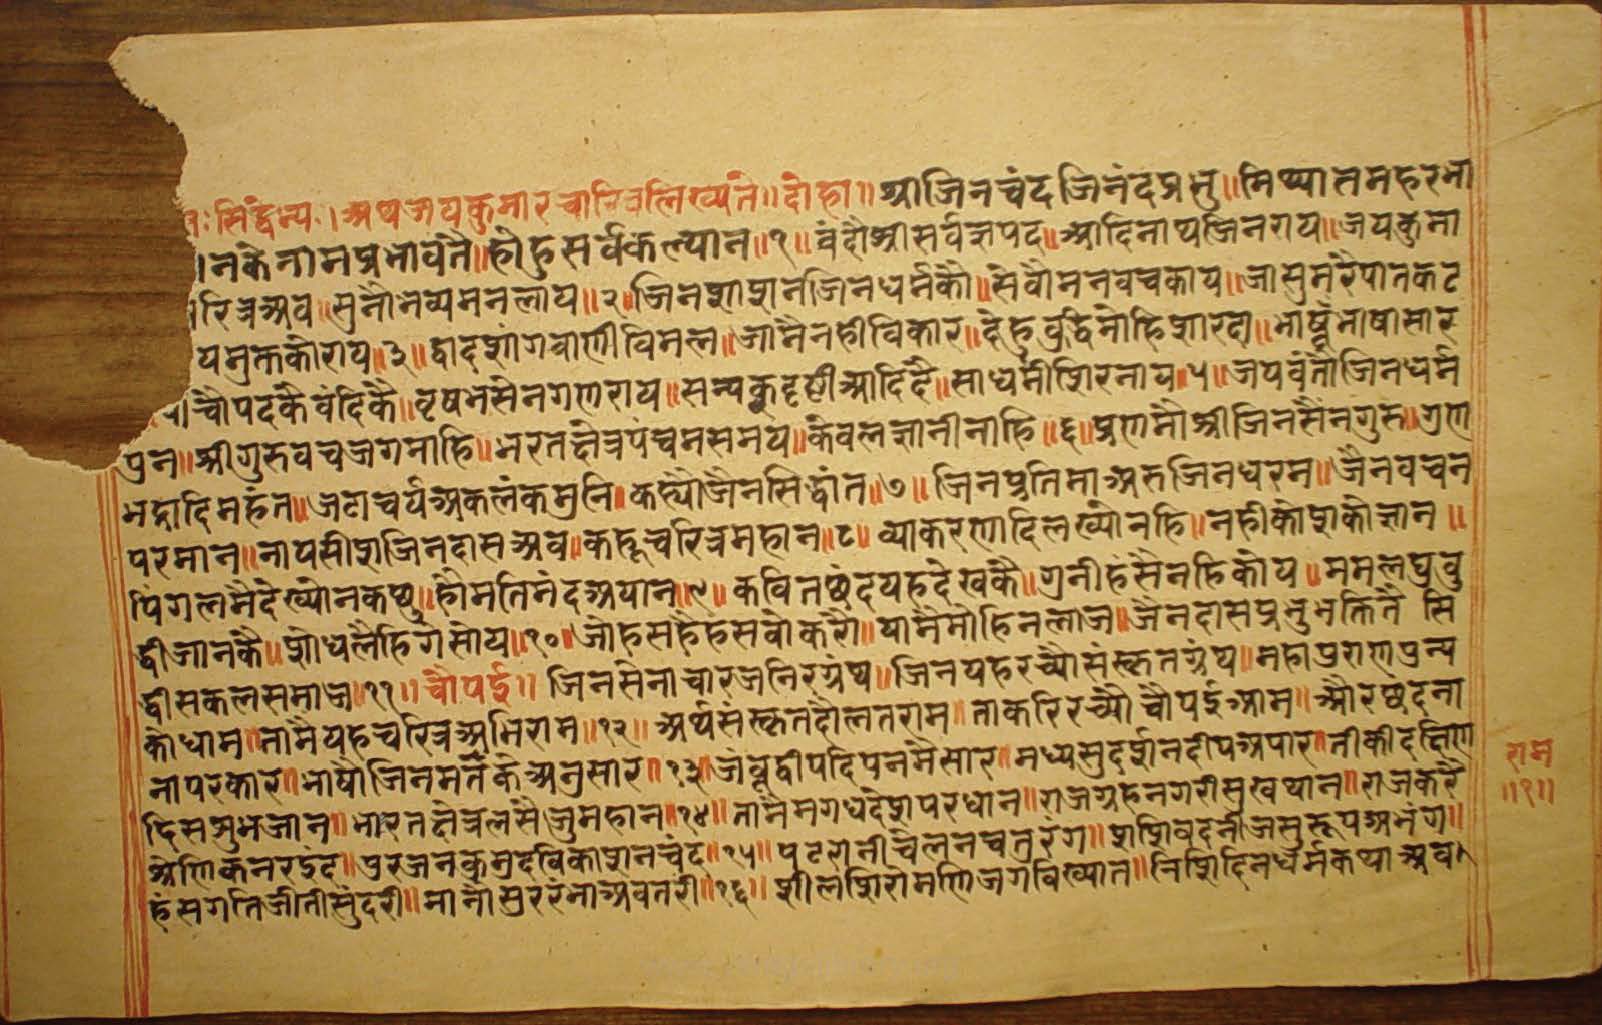 सिद्धेभ्यः । अथ जयकुमारचारित्र लिख्यंते ॥ दोहा ॥ श्रीजिनचंद जिनंदप्रभु ॥ मिथ्यातमहरभा
नके नामप्रभावतै ॥ होहु सर्वकल्यान ॥ १ ॥ वंदौ श्रीसर्वज्ञपद ॥ आदिनाथजिनराय ॥ जयकुमा
रित्र अव ॥ सुनौ भव्य मनलाय ॥ २ ॥ जिनशाशन जिनधर्मकौ ॥ सेवौ मनवचकाय ॥ जा सुमरै पातक कट
य मुक्तकोराय ॥ ३ ॥ द्वादशांगवाणी विमल ॥ जामै नही विकार ॥ देहु वुद्धि मोहि शारदा ॥ भाषूं भाषासार
चौपदकै वंदिकै ॥ वृषभसेन गणराय ॥ सम्यकदृष्टी आदि दै ॥ साधर्मी शिरनाय ॥ ५ ॥ जयवंतौ जिनधर्म
पुन ॥ श्रीगुरुवच जगमाहि ॥ भरतक्षेत्र पंचमसमय ॥ केवलज्ञानी नाहि ॥ ६ ॥ प्रणमौ श्रीजिनसैनगुरु ॥ गुण
भद्रादि महंत ॥ जटाचर्य अकलंकमुनि ॥ कह्यौ जैनसिद्धांत ॥ ७ ॥ जिनप्रतिमा अरु जिनधरम ॥ जैनवचन
परमान ॥ नाय सीश जिनदास अव ॥ कहूं चरित्र महान ॥ ८ ॥ व्याकरणादि लख्यो नहि ॥ नही कोशको ज्ञान ॥
पिंगल मै देख्यो न कछु ॥ हौ मतिमंद अयान ॥ ९ ॥ कवित छंद यह देखकै ॥ गुनी हंसै नहि कोय ॥ मम लघु वु
द्धी जानकै ॥ शोध लैहिगे सोय ॥ १० ॥ जो हसहै हसवो करो ॥ यामै मोहि न लाज ॥ जैनदास प्रभुभक्तितै सि
द्धी सकलसमाज ॥ ११ ॥ चौपई ॥ जिनसेनाचारज निरग्रंथ ॥ जिन यह रच्यौ संस्कृत ग्रंथ ॥ महापुराण पुन्य
को धाम ॥ तामै यह चरित्र अभिराम ॥ १२ ॥ अर्थ संस्कृत दौलतराम ॥ ताकरि रच्यौ चौपई आम ॥ और छद ना
नापरकार ॥ भाषौ जिनमतकै अनुसार ॥ १३ ॥ जंवूद्वीप दिपनमै सार ॥ मध्य सुदर्शन दीप अपार ॥ तीकी दक्षिण
दिस शुभ जान ॥ भारतक्षेत्र लसै जु महान ॥ १४ ॥ तामै मगधदेश परधान ॥ राजग्रह नगरी सुखथान ॥ राज करै
श्रेणिक नरइंद ॥ पुरजन कुमुद विकाशन चंद ॥ १५ ॥ पटरानी चेलन चतुरंग ॥ शशिवदनी जसु रूप अभंग ॥
हंसगति जीती सुंदरी ॥ मानो सुररंभा अवतरी ॥ १६ ॥ शीलशिरोमणि जगविख्यात ॥ निशिदिन धर्मकथा अव
राम
॥ १ ॥